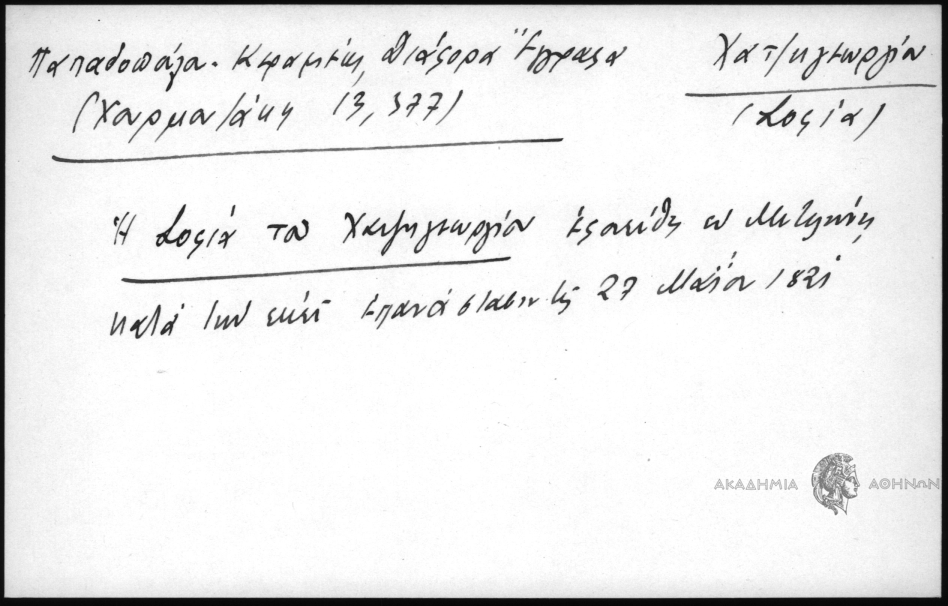 Παπαδοπούλου-Κεραμέως, Διάφορα Ἔγγραφα
(Χαρματζάκης 13, 377)
Χατζηγεωργίου
(Σοφία)
Ἡ Σοφία του Χατζηγεωργίου ἐφονεύθη εν Μιτυλήνῃ
κατά την εκεί επανάστασιν τῆς 27 Μαΐου 1821
ΑΚΑΔΗΜΙΑ ΑΘΗΝΩΝ